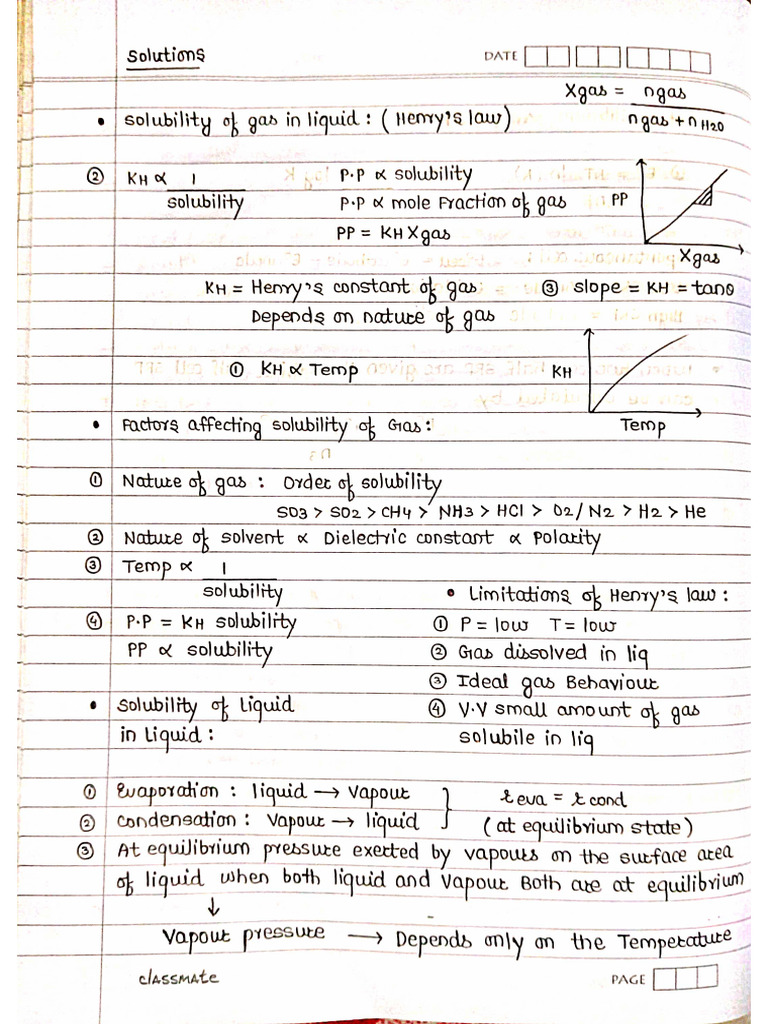 Solutions DATE
Xgas = ngas / ngas + nH2O
• Solubility of gas in liquid : ( Henry's law )
② KH ∝ 1 / solubility
P.P ∝ solubility
P.P ∝ mole Fraction of gas
PP = KH Xgas
PP
Xgas
KH = Henry's constant of gas
③ slope = KH = tanθ
Depends on nature of gas
① KH ∝ Temp
KH
Temp
• Factors affecting solubility of Gas :
① Nature of gas : Order of solubility
SO3 > SO2 > CH4 > NH3 > HCl > O2/N2 > H2 > He
② Nature of solvent ∝ Dielectric constant ∝ Polarity
③ Temp ∝ 1 / solubility
④ P.P = KH solubility
PP ∝ solubility
• Limitations of Henry's law :
① P = low T = low
② Gas dissolved in liq
③ Ideal gas Behaviour
④ V.V small amount of gas
solubile in liq
• Solubility of liquid
in Liquid :
① Evaporation : liquid → Vapour
② Condensation : Vapour → liquid
r eva = r cond
( at equilibrium state )
③ At equilibrium pressure exerted by vapours on the surface area
of liquid when both liquid and Vapour Both are at equilibrium
↓
Vapour pressure → Depends only on the Temperature
classmate PAGE